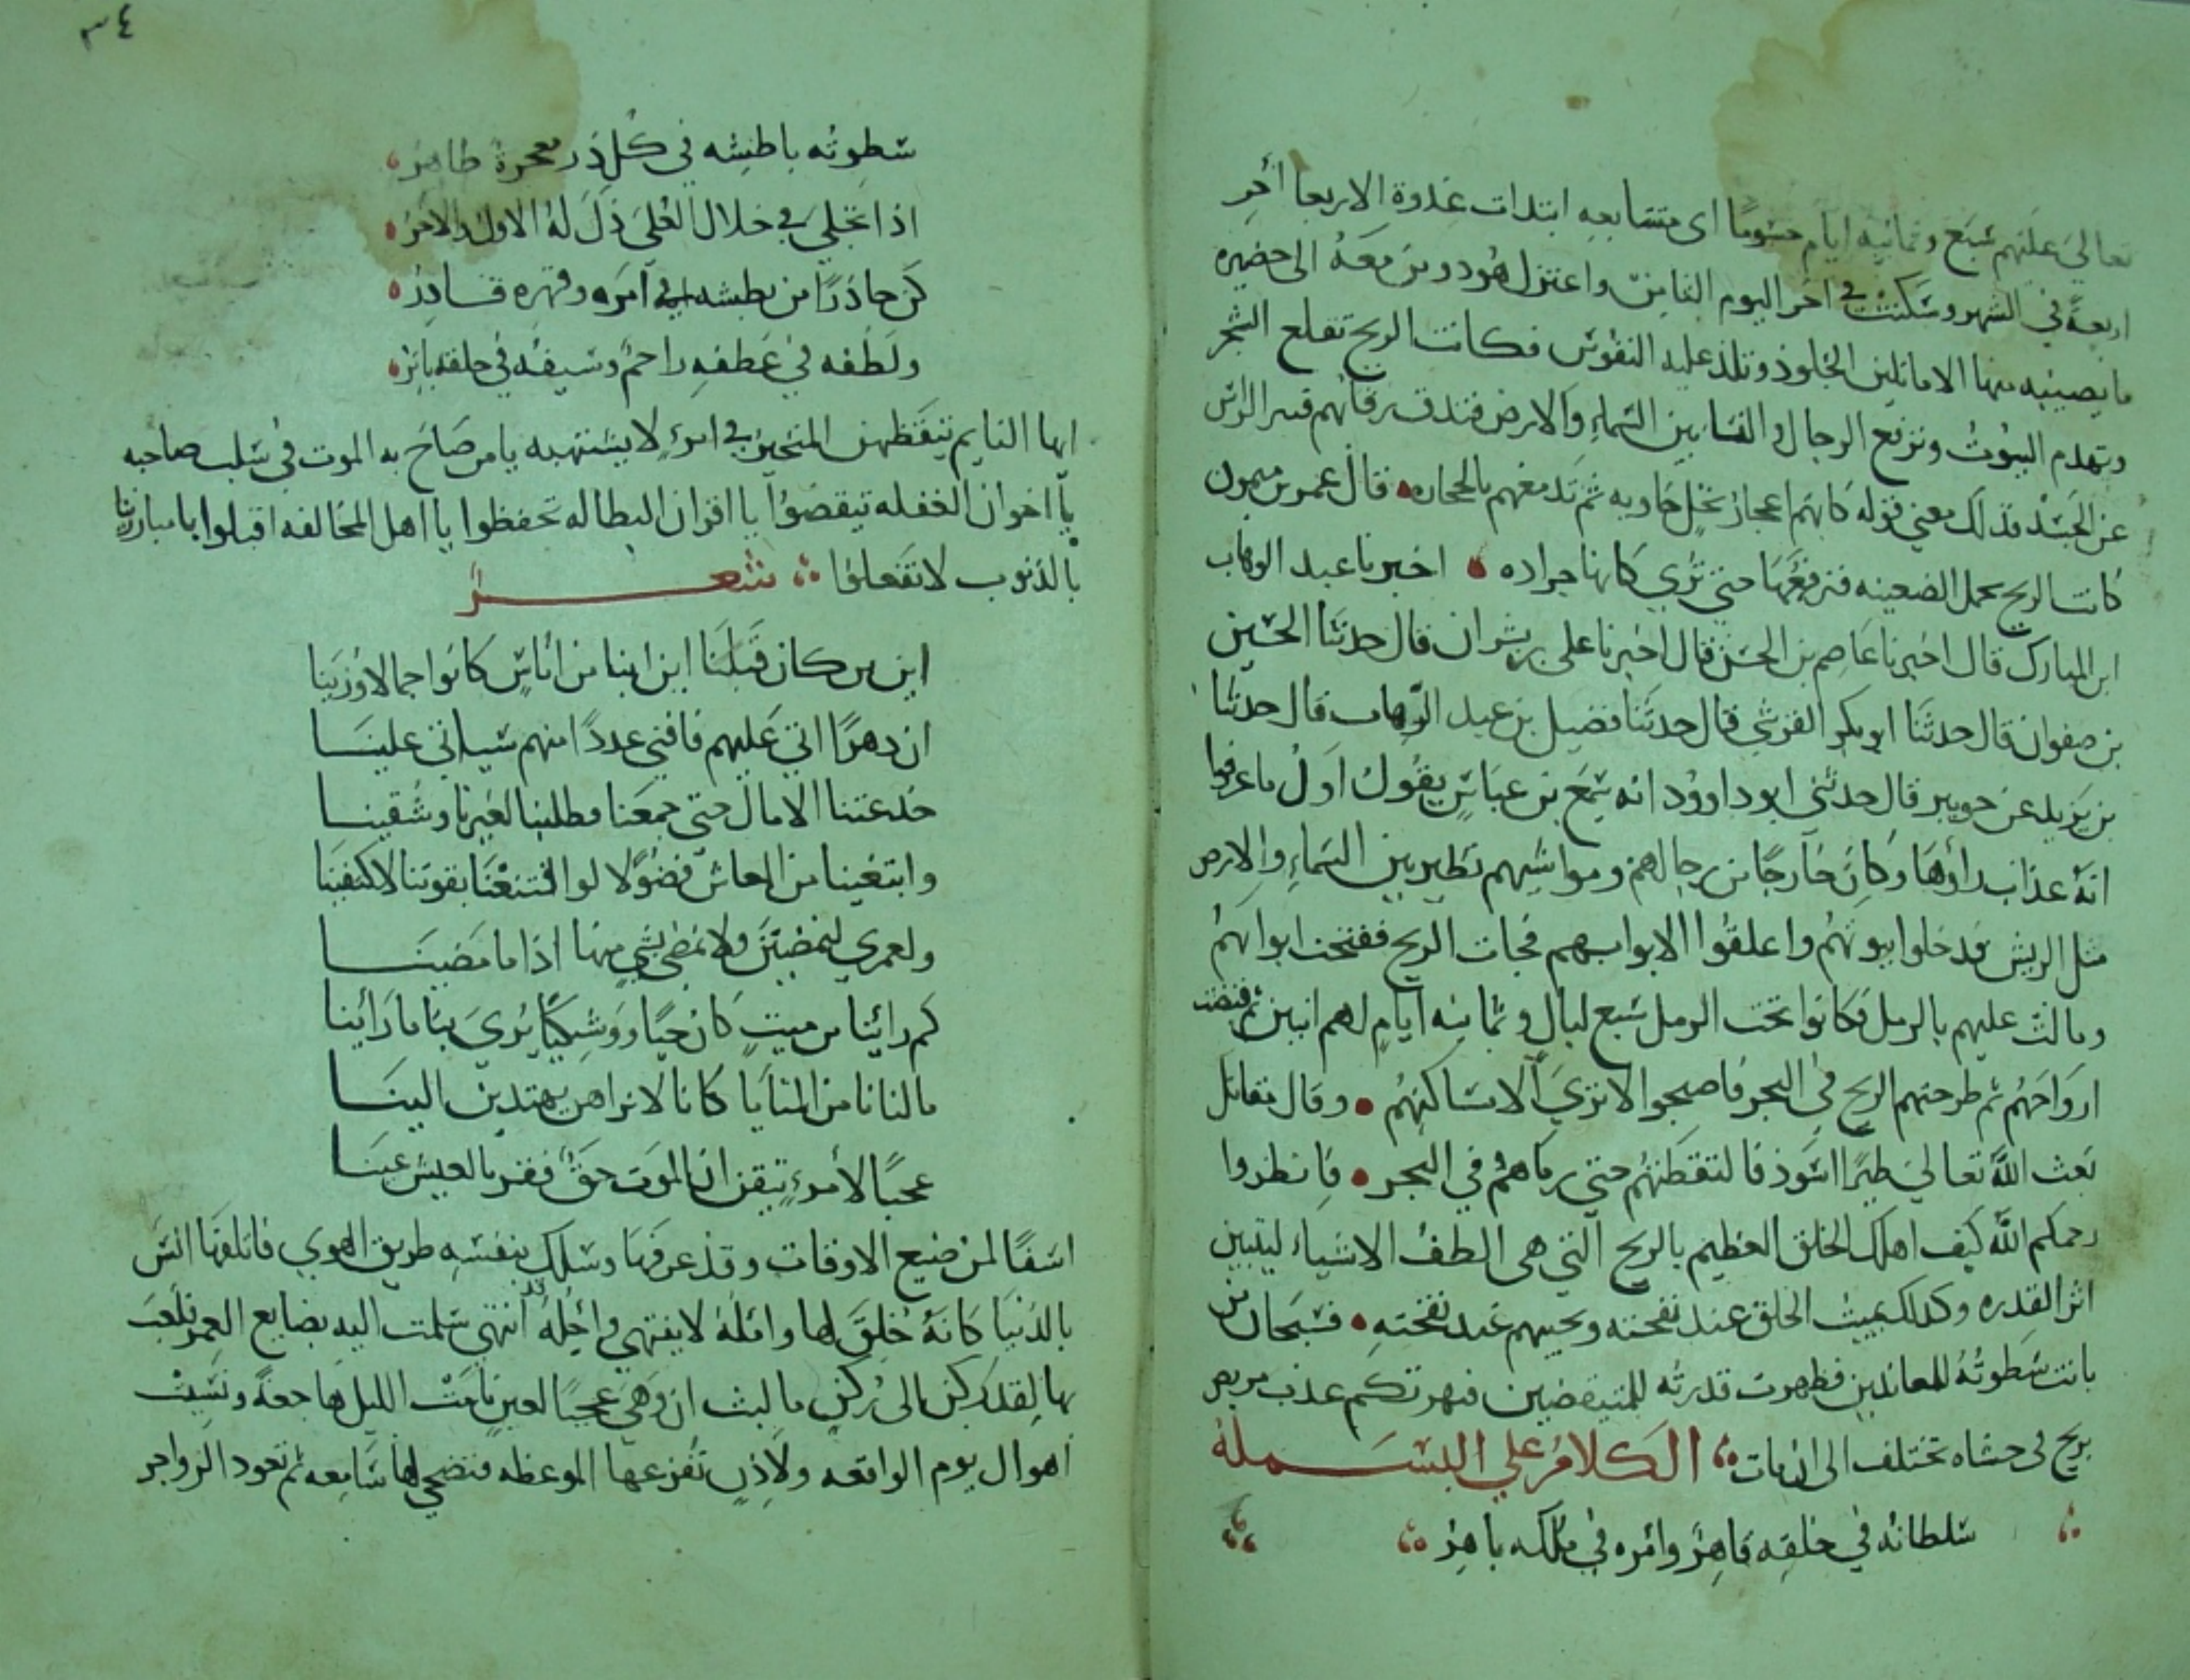 تعالي عليهم سبع وثمانيه ايام حسوما اى متتابعه ابتدات غدوة الاربعا آخر
اربعة في الشهر وسكنت في اخر اليوم الثامن واعتزل هود ومن معه الى حضيره
ما يصيبه منها الا ما تلين الجلود وتلذ عليه النفوس فكانت الريح تقلع الشجر
وتهدم البيوت وترفع الرجال والنسا بين السماء والارض فتندق رقابهم فيبين الراس
عن الجسد فذلك معني قوله كانهم اعجاز نخل خاويه ثم تدمغهم بالحجاره قال عمرو بن ميمون
كانت الريح تحمل الضعينه فترفعها حتي تري كانها جراده اخبرنا عبد الوهاب
ابن المبارك قال اخبرنا عاصم بن الحسن قال اخبرنا على بن بشران قال حدثنا الحسين
بن صفوان قال حدثنا ابو بكر القرشي قال حدثنا فضيل بن عبد الوهاب قال حدثنا
بن يزيد عن جويبر قال حدثني ابو داوود انه سمع بن عباس يقول اول ما عرفوا
انه عذاب راوها وكان خارجا من رجالهم ومواشيهم تطير بين السماء والارض
مثل الريش فدخلوا بيوتهم واغلقوا الابوابهم فجات الريح ففتحت ابوابهم
ومالت عليهم بالرمل فكانوا تحت الرمل سبع ليال وثمانيه ايام لهم انين ثم قبضت
ارواحهم ثم طرحتهم الريح في البحر فاصبحوا لا تري الا مساكنهم وقال مقاتل
بعث الله تعالي طيرا اسود فالتقطتهم حتي رماهم في البحر فانظروا
رحمكم الله كيف اهلك الخلق العظيم بالريح التي هى الطف الاشياء ليتبين
اثر القدره وكذلك يميت الخلق عند نفخته ويحييهم عند نفخته فسبحان من
بانت سطوته للمعاندين فظهرت قدرته للمتيقضين فهو تكم عذب مريض
بريح في حشاه تختلف الى الكلام علي البسملة
سلطانه في خلقه قاهر وامره في ملكه باهر
٣٤
سطوته باطشه في كل ذر معجزة ظاهر
اذا تجلي في جلال العلي ذل له الاول والاخر
كن حاذرا من بطشه في امره وقهره قادر
ولطفه في عطفه راحم وسيفه في خلقه باتر
ايها النايم تيقظ من المتحير في امره لا يشتهيه يا من صاح به الموت في سلب صاحبه
يا اخوان الغفله تيقضوا يا اقران البطاله تحفظوا يا اهل المخالفه اقبلوا يا مبارزين
بالذنوب لا تفعلوا شعر
اين من كان قبلنا اين اينا من اناس كانوا جمالا وزينا
ان دهرا اتي عليهم فافني عددا منهم سياتي علينا
خدعتنا الامال حتي جمعنا وطلبنا لغيرنا وشقينا
وابتغينا من المعاش فضولا لو اقتنعنا بقوتنا لاكتفينا
ولعمري لنمضين ولا نمضي بشي منها اذا ما مضينا
كم راينا من ميت كان حيا ووشيكا يري بنا ما راينا
مالنا نامن المنايا كانا لا نراهن يهتدين الينا
عجبا لامرء تيقن ان الموت حق فقر بالعيش عينا
اسفا لمن ضيع الاوقات وقد عرفها وسلك بنفسه طريق الهوي فاتلفها انس
بالدنيا كانه خلق لها وامله لا ينتهي واجله قد انتهي سلمت اليه بضايع العمر فلعب
بها لقد ركن الى ركن ما لبث ان وهي عجبا لعين نامت الليل هاجعة ونسيت
اهوال يوم الواقعه ولاذن تقرعها الموعظه فتضحي لها سامعه ثم تعود الزواجر